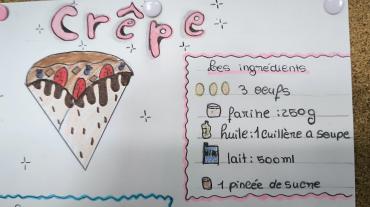 Crêpe
Les ingrédients
3 oeufs
farine : 250g
huile : 1 cuillère a soupe
lait : 500ml
1 pincée de sucre